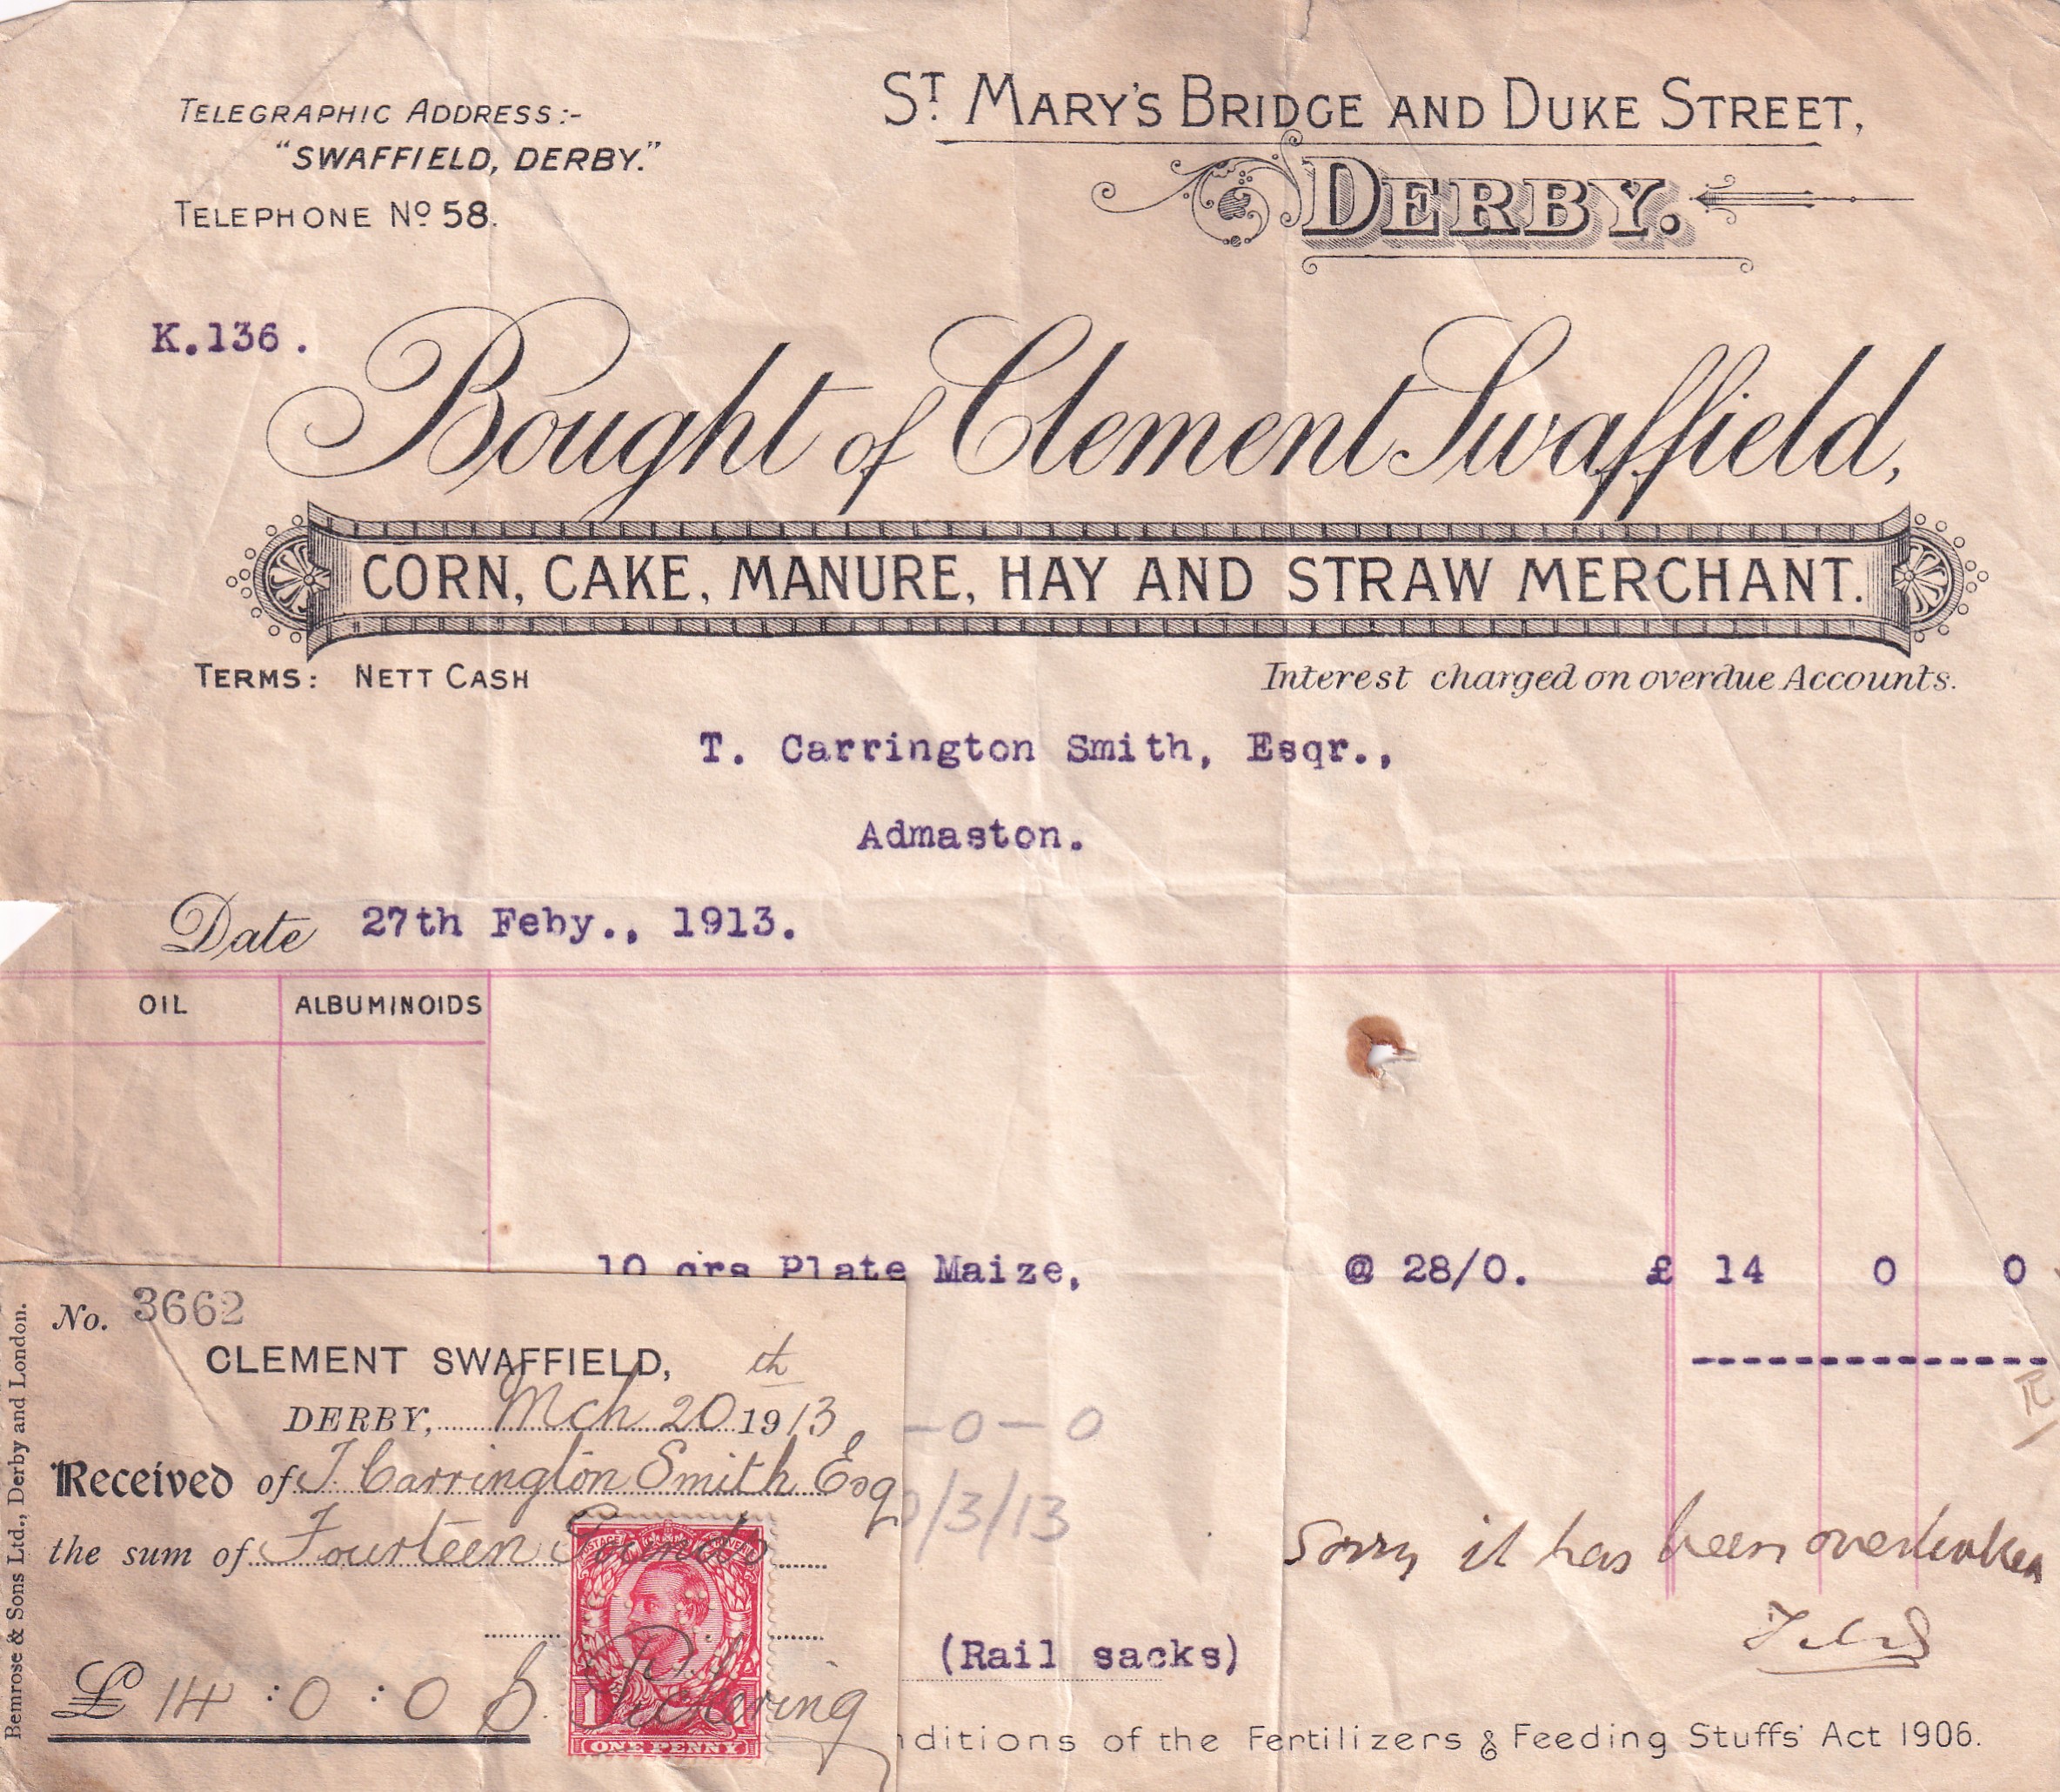 TELEGRAPHIC ADDRESS:-
"SWAFFIELD, DERBY."
TELEPHONE No 58.
ST. MARY'S BRIDGE AND DUKE STREET,
DERBY.
K.136.
Bought of Clement Swaffield,
CORN, CAKE, MANURE, HAY AND STRAW MERCHANT.
TERMS: NETT CASH
Interest charged on overdue Accounts.
T. Carrington Smith, Esqr.,
Admaston.
Date 27th Feby., 1913.
OIL ALBUMINOIDS
10 qrs Plate Maize, @ 28/0. £ 14 0 0
-0-0
/3/13
Sorry it has been overlooked
(Rail sacks)
nditions of the Fertilizers & Feeding Stuffs' Act 1906.
No. 3662
CLEMENT SWAFFIELD,
DERBY, Mch 20th 1913
Received of T. Carrington Smith Esq
the sum of Fourteen Pounds
£ 14 : 0 : 0
Pickering
ONE PENNY
Bemrose & Sons Ltd., Derby and London.